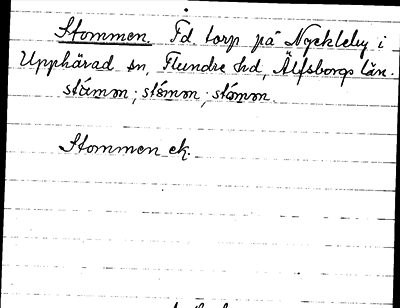 Stommen. Fd. torp på Nyckleby i
Upphärad sn, Flundre hd, Älfsborgs län.
stámm; stámm; stámm.
Stommen ek.